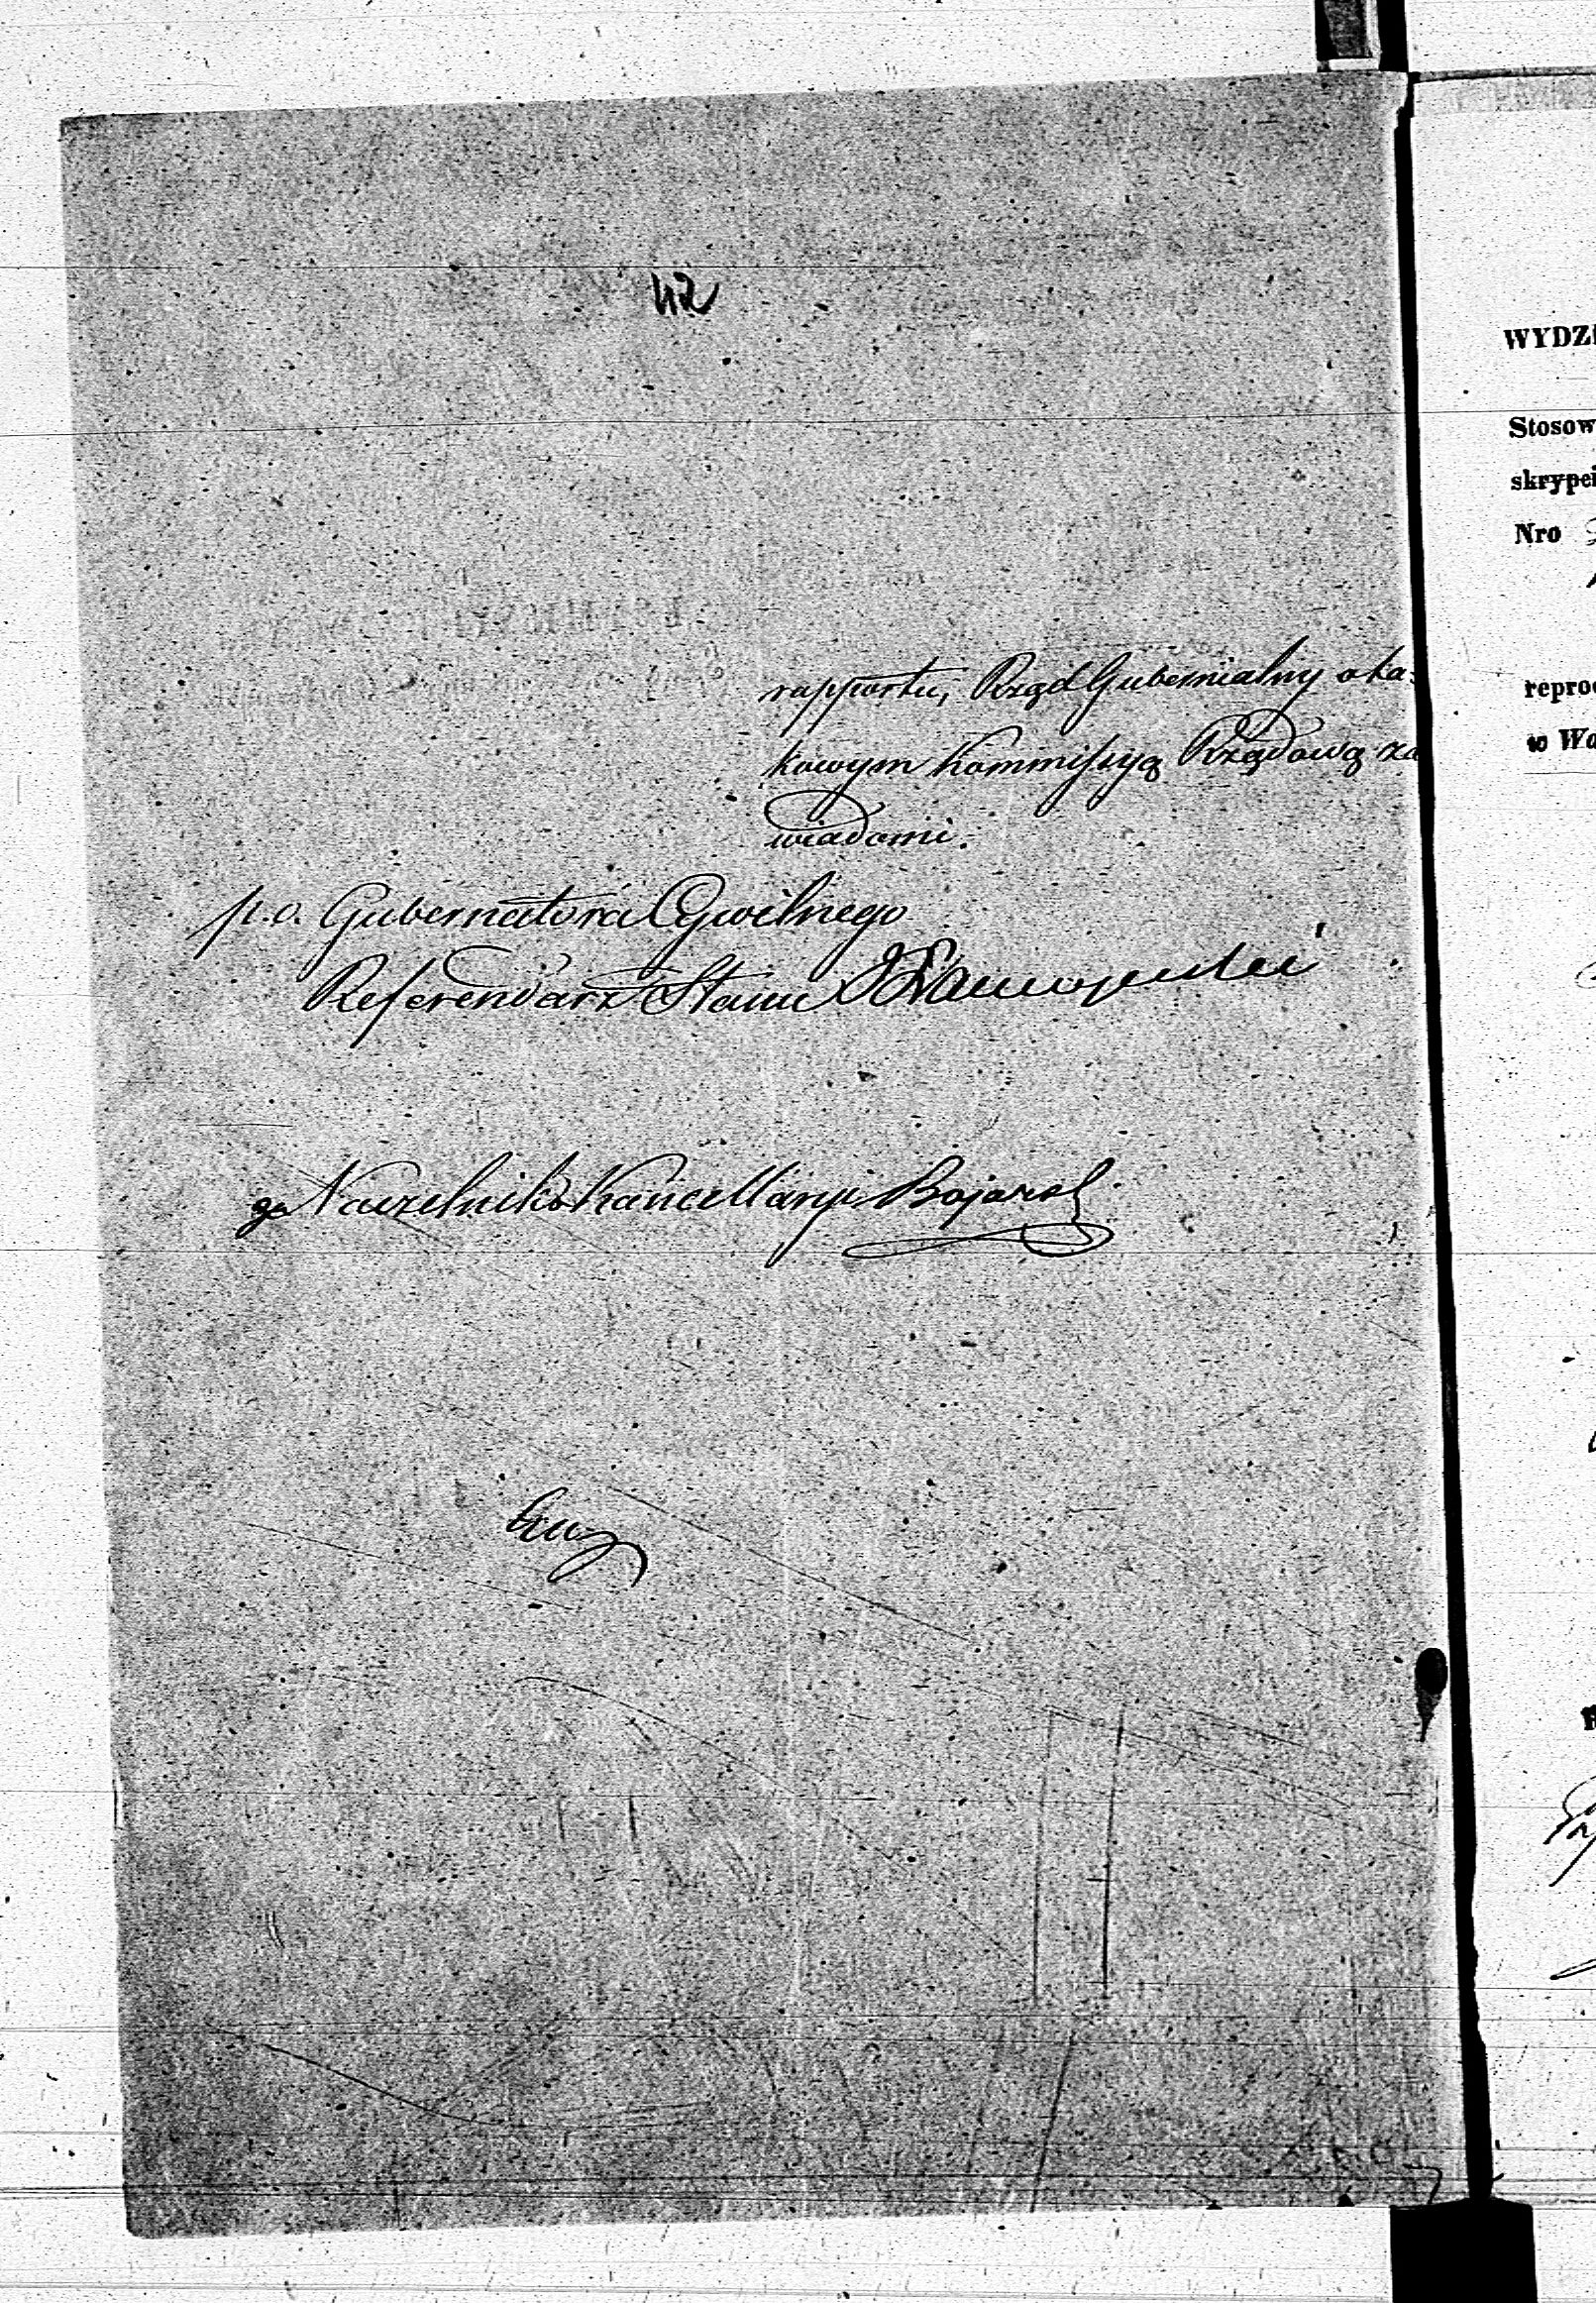 42
rapportu, Rząd Gubernialny o ta-
kowym Kommissyą Rządową za
wiadomi.
p.o. Gubernatora Cywilnego
Referendarz Stanu
Naczelnik Kancellaryi
WYDZ
Stosow
skrype
Nro
repro
w Wa